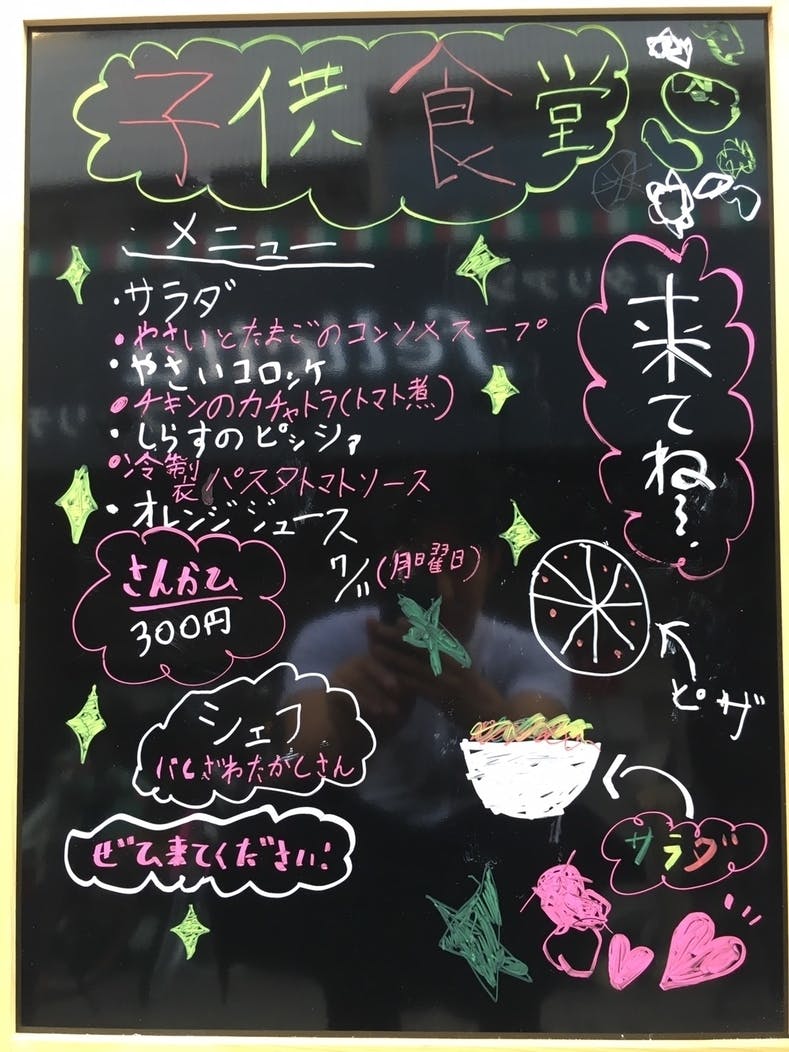 子供食堂
メニュー
・サラダ
・やさいとたまごのコンソメスープ
・やさいコロッケ
・チキンのカチャトラ(トマト煮)
・しらすのピッツァ
・冷製パスタトマトソース
・オレンジジュース
7/11(月曜日)
さんかひ
300円
シェフ
ざわたかしさん
ぜひ来てください!
来てね〜.
ピザ
サラダ